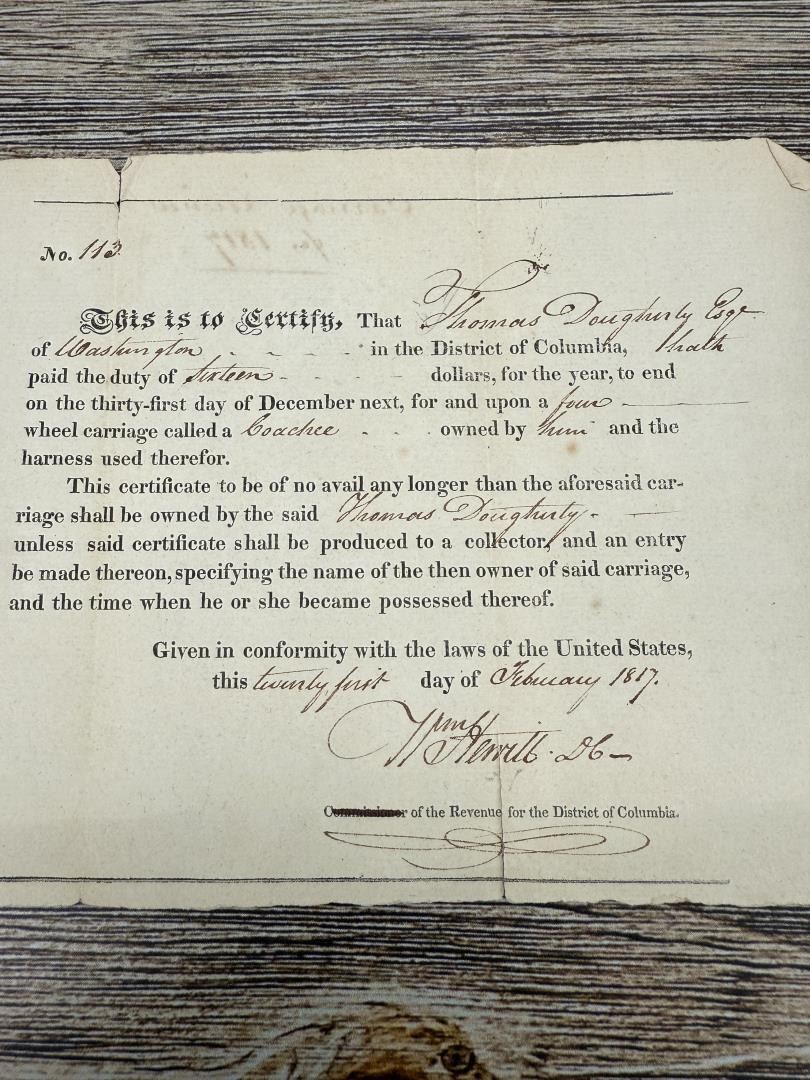 No. 113.
This is to Certify, That Thomas Dougherty Esqr
of Washington - - - - in the District of Columbia, hath
paid the duty of Sixteen - - - - dollars, for the year, to end
on the thirty-first day of December next, for and upon a four
wheel carriage called a Coachee - - - owned by him and the
harness used therefor.
This certificate to be of no avail any longer than the aforesaid car-
riage shall be owned by the said Thomas Dougherty -
unless said certificate shall be produced to a collector, and an entry
be made thereon, specifying the name of the then owner of said carriage,
and the time when he or she became possessed thereof.
Given in conformity with the laws of the United States,
this twenty first day of February 1817.
Wm Hewitt. DC
Commissioner of the Revenue for the District of Columbia.